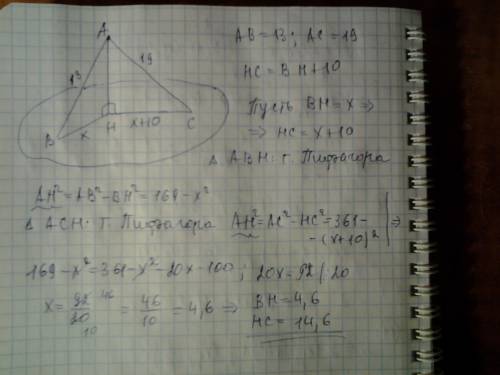 A
13
19
B
x
H
x+10
C
AB = 13; AC = 19
HC = BH+10
Пусть BH = x ⇒
⇒ HC = x+10
Δ ABH: т. Пифагора
AH² = AB² - BH² = 169 - x²
Δ ACH: т. Пифагора AH² = AC² - HC² = 361 - ⇒
- (x+10)²
169 - x² = 361 - x² - 20x - 100; 20x = 92 | 20
x = 92/20 46/10 = 46/10 = 4,6 ⇒ BH = 4,6
HC = 14,6